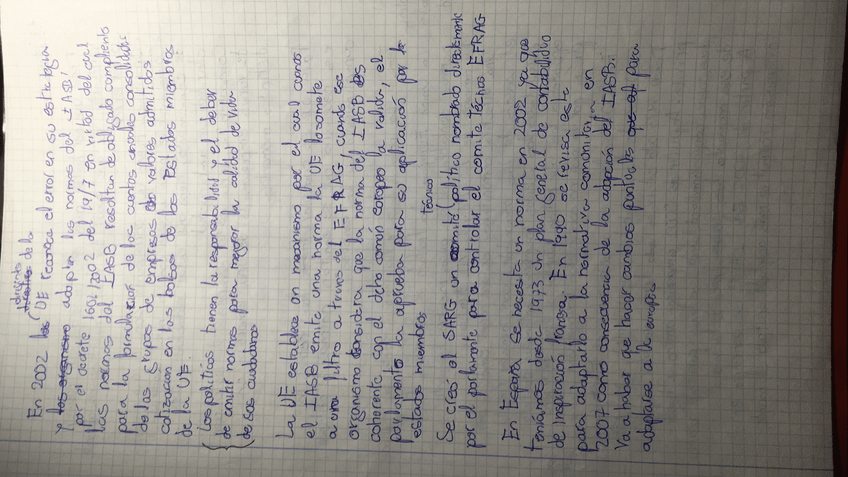 dirigentes
En 2002 los directivos de la UE reconoce el error en su estrategia
y los organismo adopta las normas del IASB,
por el decreto 1606/2002 del 19/7 en virtud del cual
las normas del IASB resultan de obligado cumpliento
para la formulación de las cuentas anuales consolidadas
de los grupos de empresas de valores admitidos
cotización en las bolsas de los Estados miembros
de la UE.
Los políticos tienen la responsabilidad y el deber
de emitir normas para mejorar la calidad de vida
de sus ciudadanos
La UE establece un mecanismo por el cual cuando
el IASB emite una norma la UE la somete
a un filtro a traves del EFRAG, cuando ese
organismo considera que la norma del IASB es
coherente con el dcho común europeo la valida, el
parlamento la aprueba para su aplicación por los
estados miembros
técnico
Se creó el SARG un comité (político nombrado directamente
por el parlamento para controlar el comité técnico EFRAG
En España se necesita un norma en 2002 ya que
teníamos desde 1973 un plan general de contabilidad
de inspiración francesa. En 1990 se revisa este
para adaptarlo a la normativa comunitaria, en
2007 como consecuencia de la adopción del IASB.
Va a haber que hacer cambios puntuales para
adaptarse a la europea